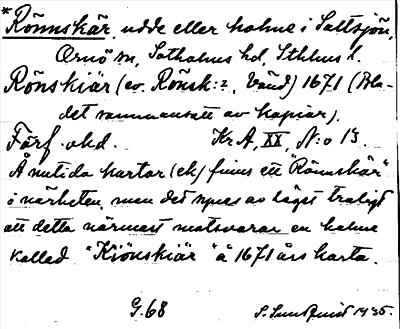 *Rönnskär, udde eller holme i Saltsjön,
Ornö sn, Sotholms hd, Sthlms l.
Rönskiär (ev. Rönsk:?, vänd) 1671 (Bla-
det sammansatt av kopior).
Förf. okd. Kr A, XX, N:o 13.
Å nutida kartor (ek) finns ett "Rönnskär"
i närheten, men det synes av läget troligt
att detta närmast motsvarar en holme
kallad "Kiönskiär" å 1671 års karta.
G.68 S. Sundquist 1935.